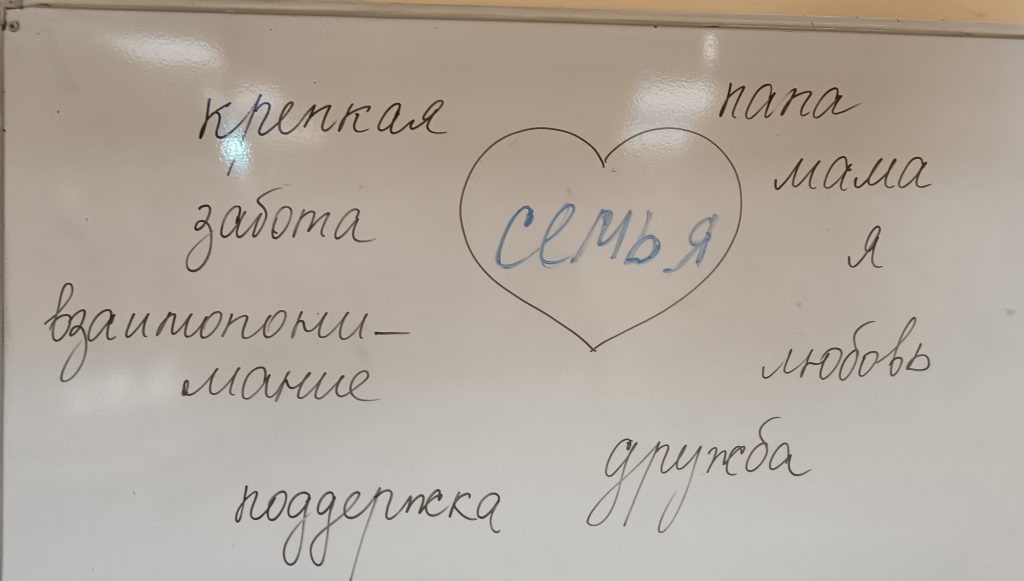 крепкая
забота
взаимопони-
мание
поддержка
семья
папа
мама
я
любовь
дружба